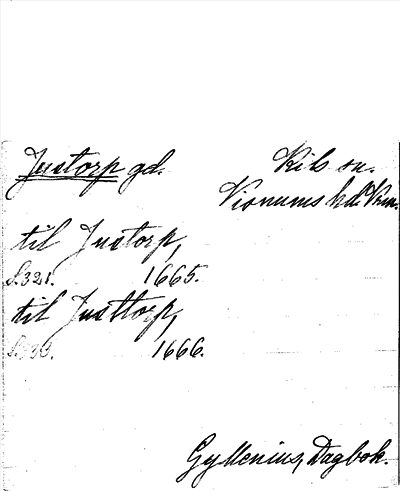 Justorp gd. Kils sn.
Visnums hd. Vrm.
til Justorp,
S. 321. 1665.
til Justtorp,
S. 333. 1666.
Gyllenius, Dagbok.